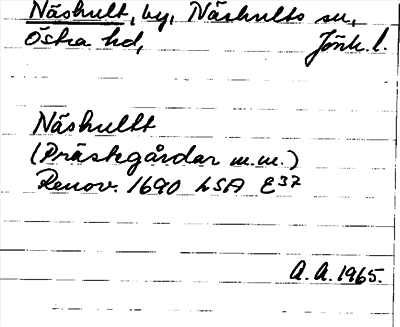 Näshult, by, Näshults sn,
Östra hd, Jönk. l.
Näshultt
(Prästegårdar m.m.)
Renov. 1690 LSA E37
A. A. 1965.